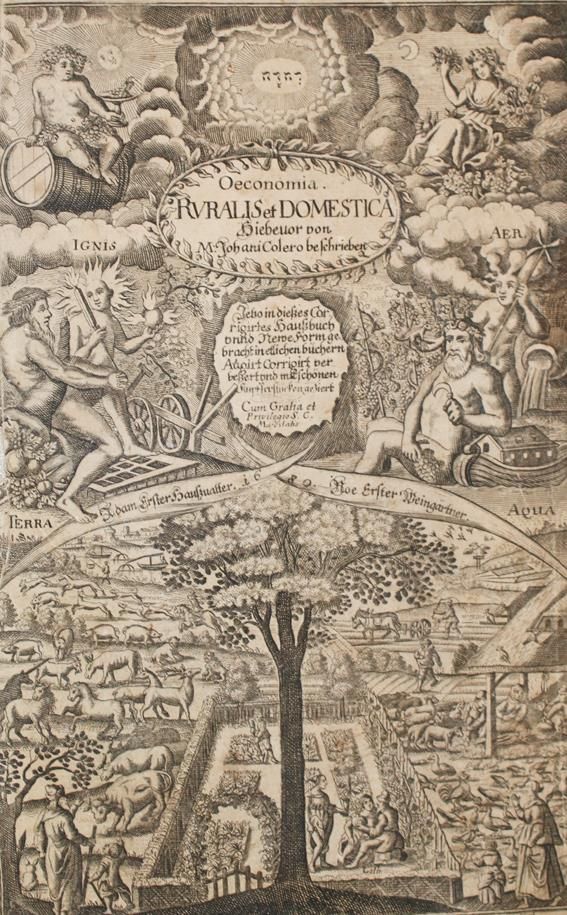 יהוה
Oeconomia.
RVRALIS et DOMESTICA
Hiebeuor von
M. Johani Colero beschrieben
IGNIS
AER.
Jetzo in dießes Cor
rigirtes Haußbuch
vnnd Newe Form ge
bracht in etlichen büchern
Corrigirt ver
beßert vnd mit schönen
geziert
Cum Gratia et
Privilegio S. C.
Adam Erster Haußuatter. 16
80. Noe Erster Weingartner.
TERRA
AQUA